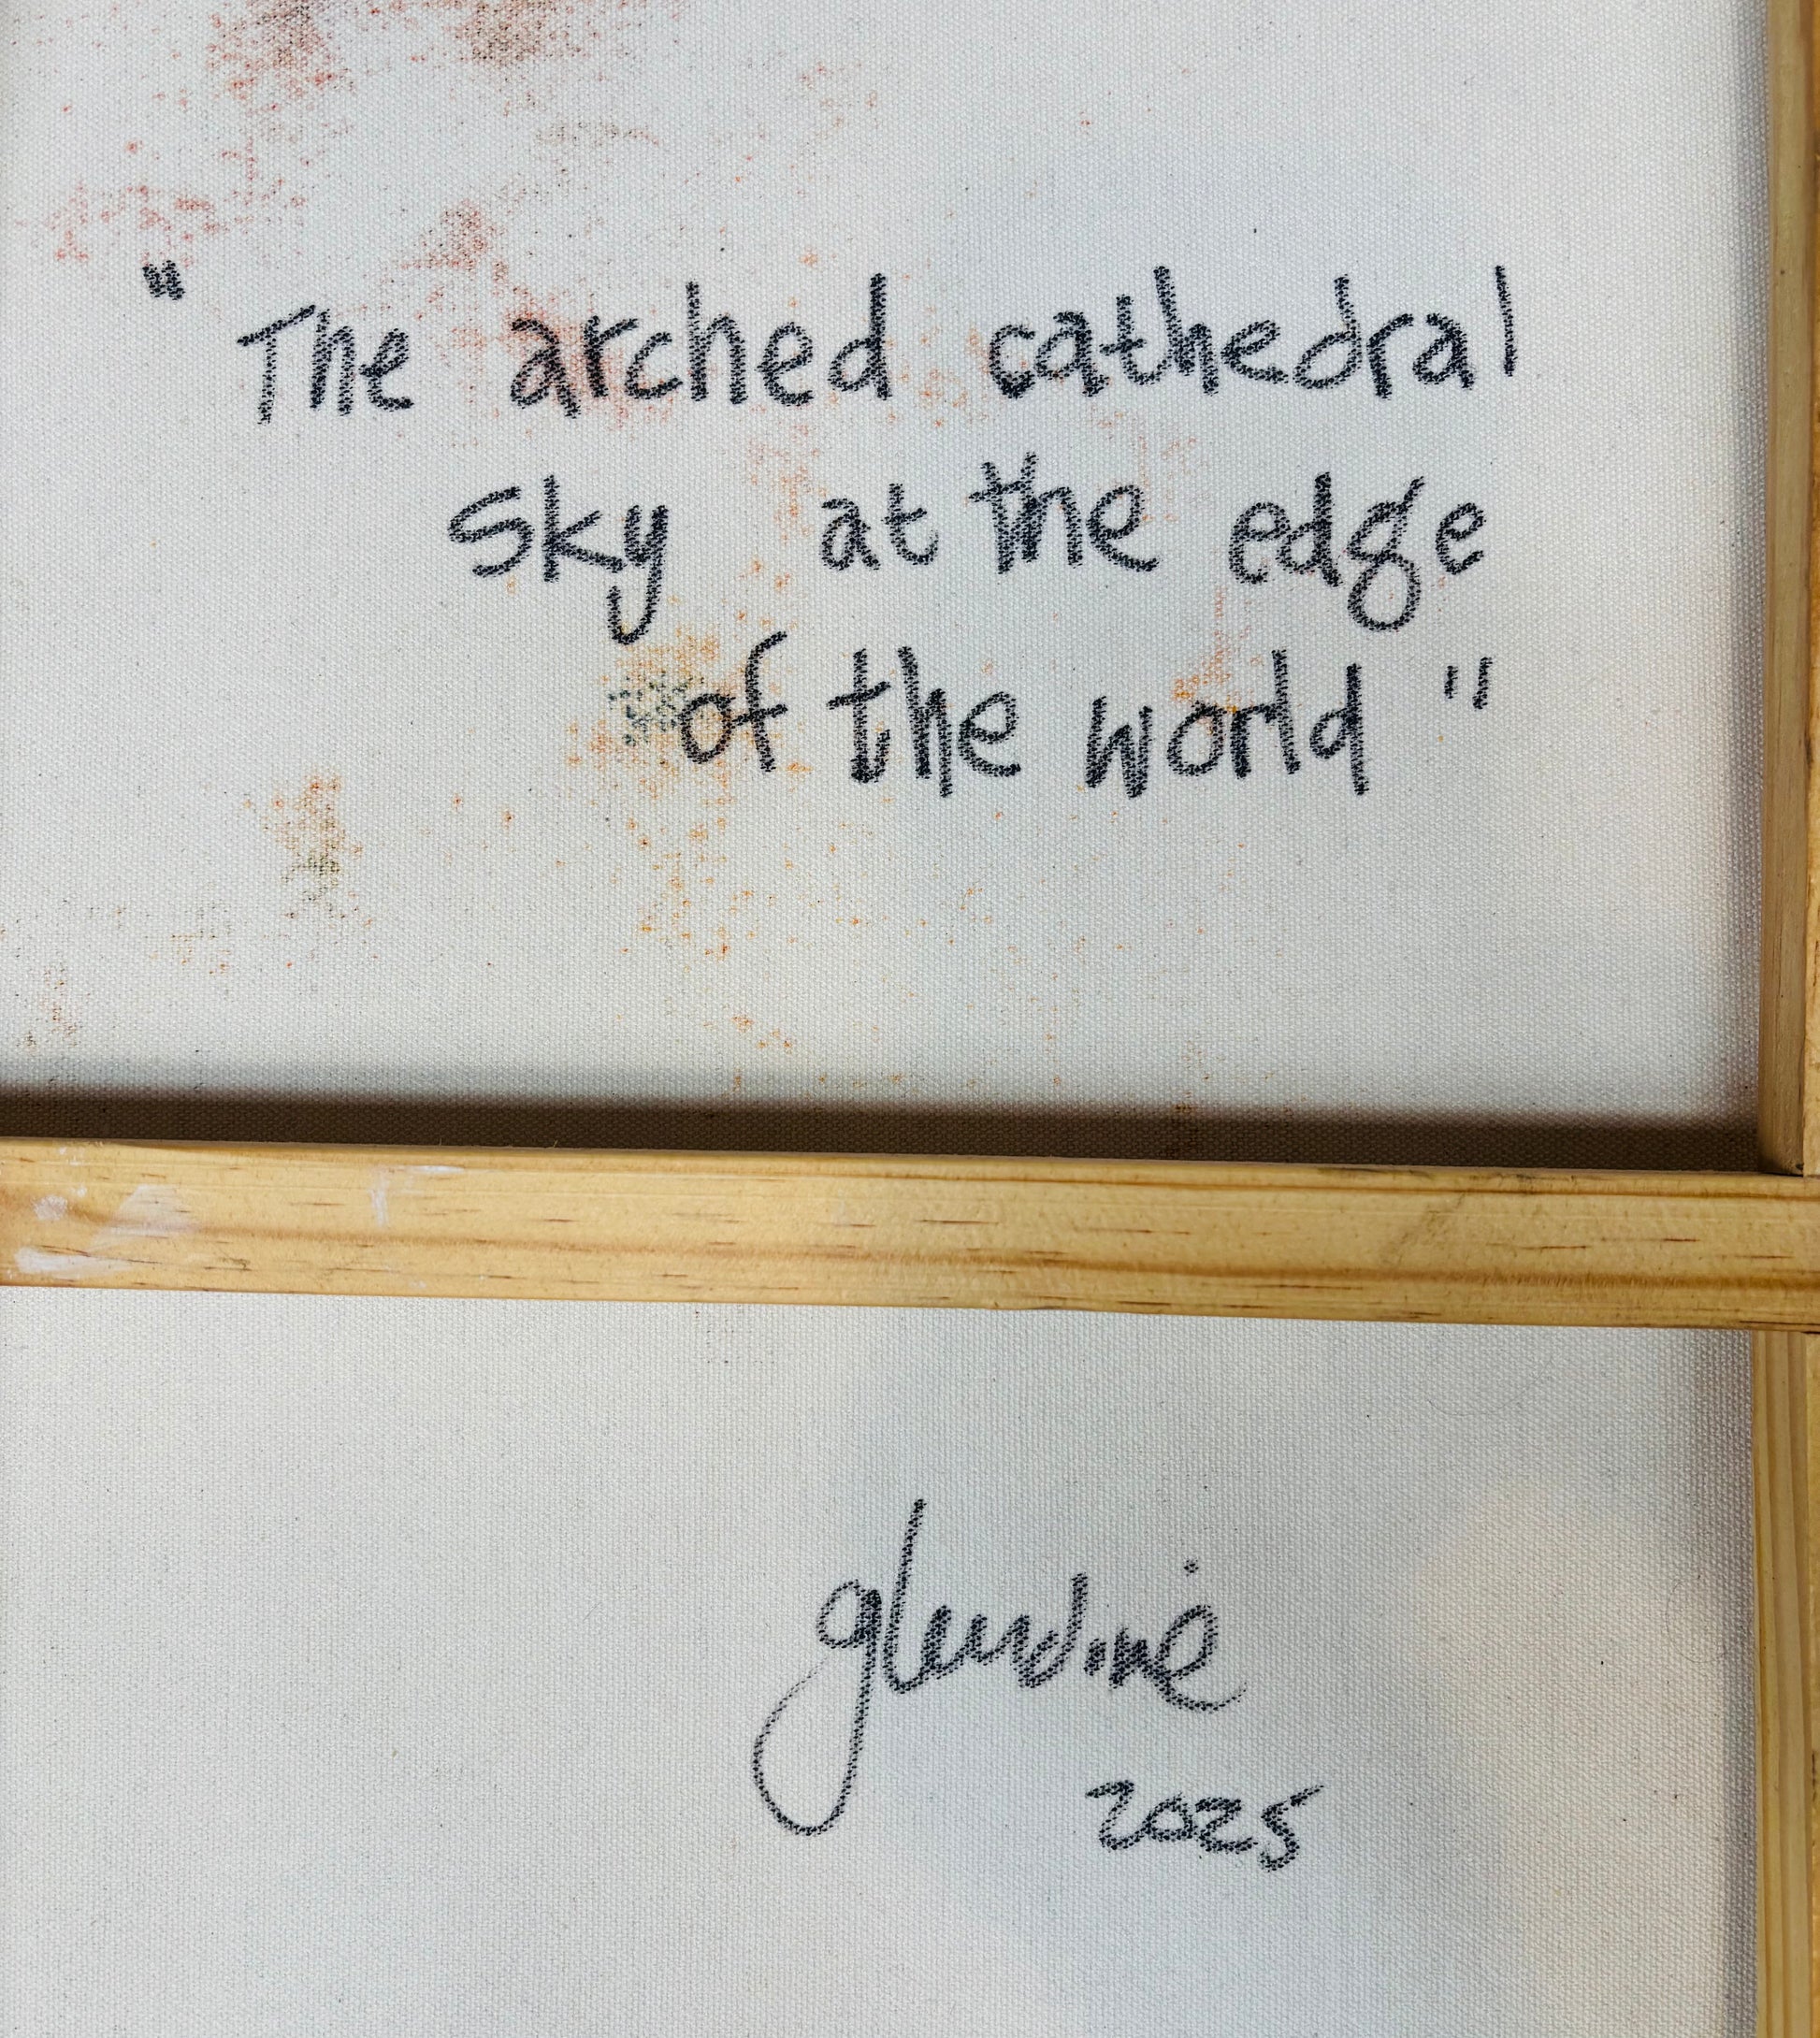 "The arched cathedral
sky at the edge
of the world"
2025